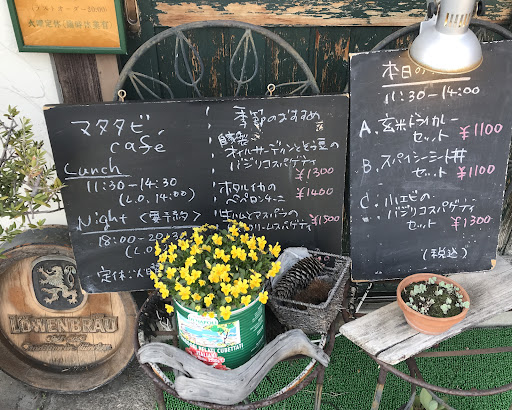 (ラストオーダー20:00)
マタタビ
cafe
Lunch
11:30-14:30
(L.O. 14:00)
Night <要予約>
18:00-20:30
(L.O.
定休:火曜
季節のおすすめ
自家製
オイルサーディンとそら豆の
バジリコスパゲティ
¥1300
ホタルイカの
ペペロンチーニ
¥1400
生ハムとアスパラの
クリームスパゲティ
¥1500
本日の
11:30-14:00
A. 玄米ドライカレー
セット ¥1100
B. スパイシーミート丼
セット ¥1100
C. 小エビの
バジリコスパゲティ
セット ¥1300
(税込)
LÖWENBRÄU
ITALIAN